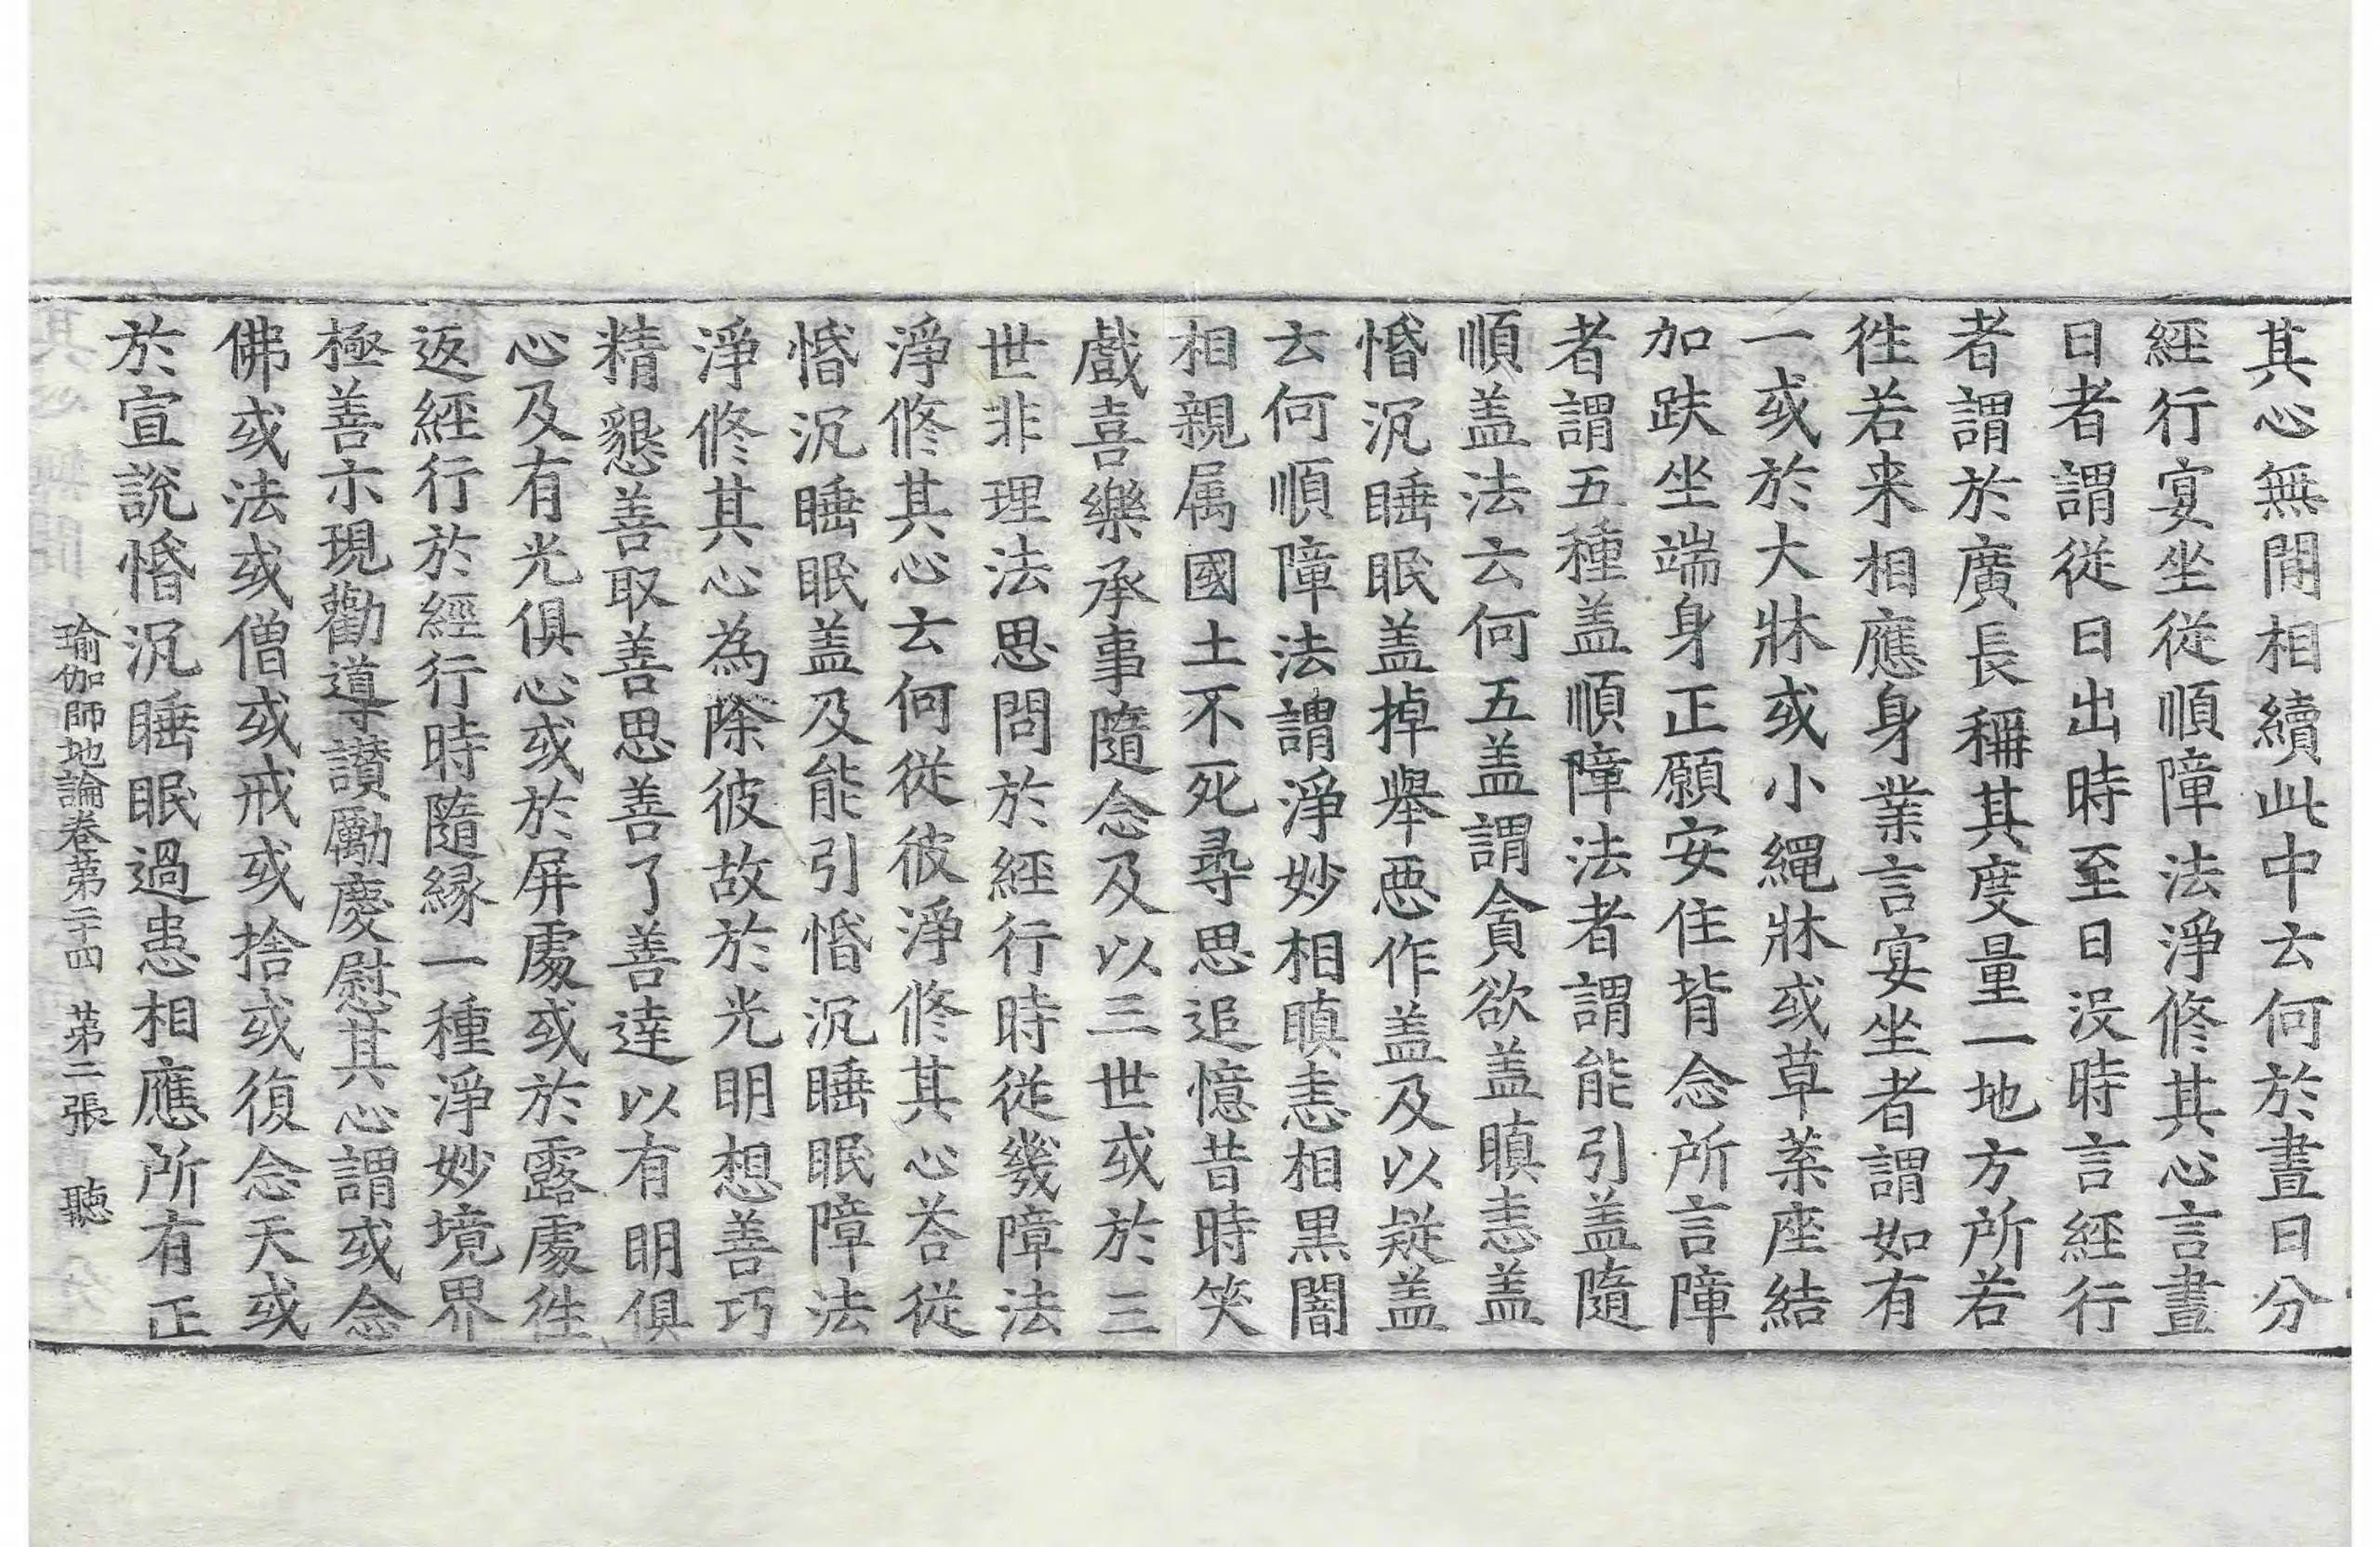 其心無間相續此中云何於晝日分
經行宴坐從順障法淨修其心言晝
日者謂從日出時至日没時言經行
者謂於廣長稱其度量一地方所若
往若来相應身業言宴坐者謂如有
一或於大牀或小繩牀或草葉座結
加趺坐端身正願安住背念所言障
者謂五種盖順障法者謂能引盖隨
順盖法云何五盖謂貪欲盖瞋恚盖
惛沉睡眠盖掉舉惡作盖及以疑盖
云何順障法謂淨妙相瞋恚相黑闇
相親属國土不死尋思追憶昔時笑
戲喜樂承事隨念及以三世或於三
世非理法思問於經行時從幾障法
淨修其心云何從彼淨修其心荅從
惛沉睡眠盖及能引惛沉睡眠障法
淨修其心為除彼故於光明想善巧
精懇善取善思善了善達以有明俱
心及有光俱心或於屏處或於露處往
返經行於經行時隨縁一種淨妙境界
極善示現勸導讃勵慶慰其心謂或念
佛或法或僧或戒或捨或復念天或
於宣說惛沉睡眠過患相應所有正
瑜伽師地論卷第二十四 第二張 聽